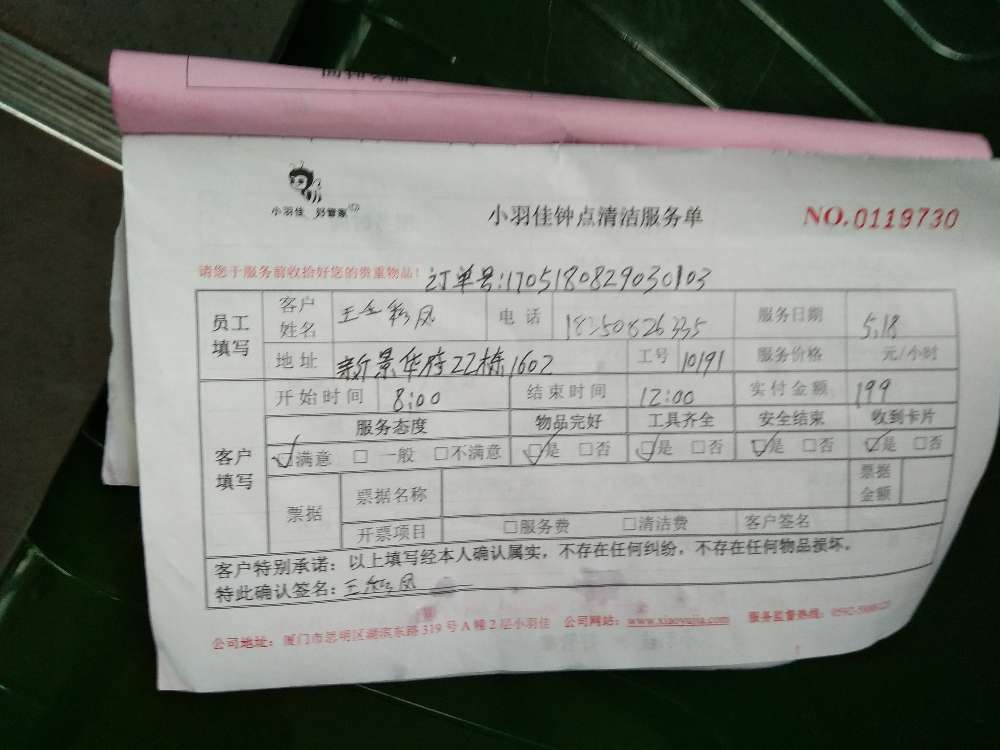 小羽佳 好管家
小羽佳钟点清洁服务单
NO.0119730
请您于服务前收拾好您的贵重物品！ 订单号:1705180829030103
员工填写 客户姓名 彩凤 电话 18350826335 服务日期 5.18
地址 新景华府22栋1602 工号 10191 服务价格 元/小时
客户填写 开始时间 8:00 结束时间 12:00 实付金额 199
服务态度 物品完好 工具齐全 安全结束 收到卡片
☑满意 □一般 □不满意 ☑是 □否 ☑是 □否 ☑是 □否 ☑是 □否
票据 票据名称 票据金额
开票项目 □服务费 □清洁费 客户签名
客户特别承诺：以上填写经本人确认属实，不存在任何纠纷，不存在任何物品损坏。
特此确认签名：王彩凤
公司地址：厦门市思明区湖滨东路319号A幢2层小羽佳 公司网站：www.xiaoyujia.com 服务监督热线：0592-